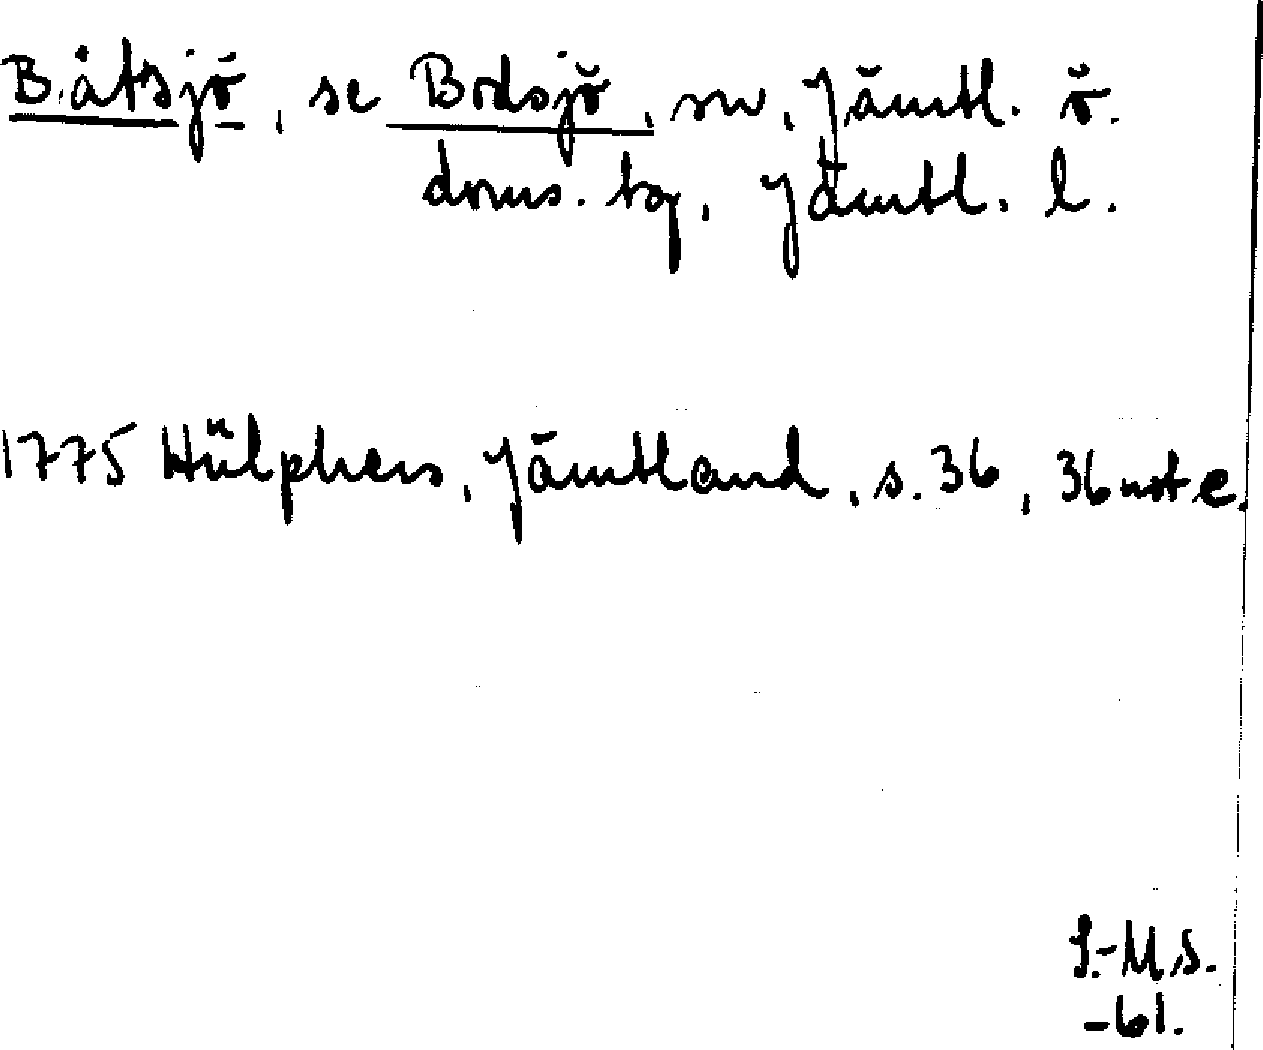 Båtsjö, se Bodsjö, sn, Jämtl. ö.
doms. tg, Jämtl. l.
1775 Hülphers, Jämtland, s. 36, 36 note.
I.-M S.
-61.